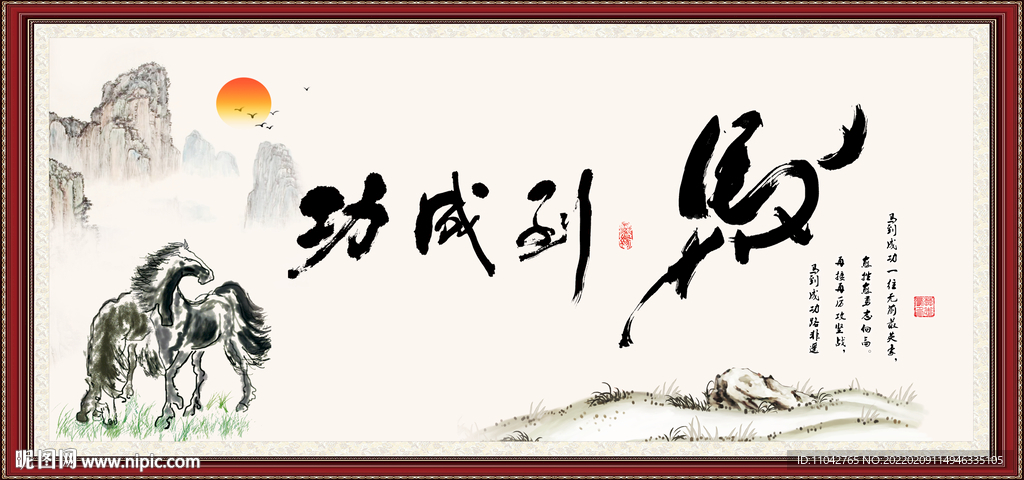 马到成功
马到成功一往无前最英豪，
愈挫愈勇志向高。
再接再厉攻坚战，
马到成功路非遥
昵图网 www.nipic.com
ID:11042765 NO:20220209114946335105